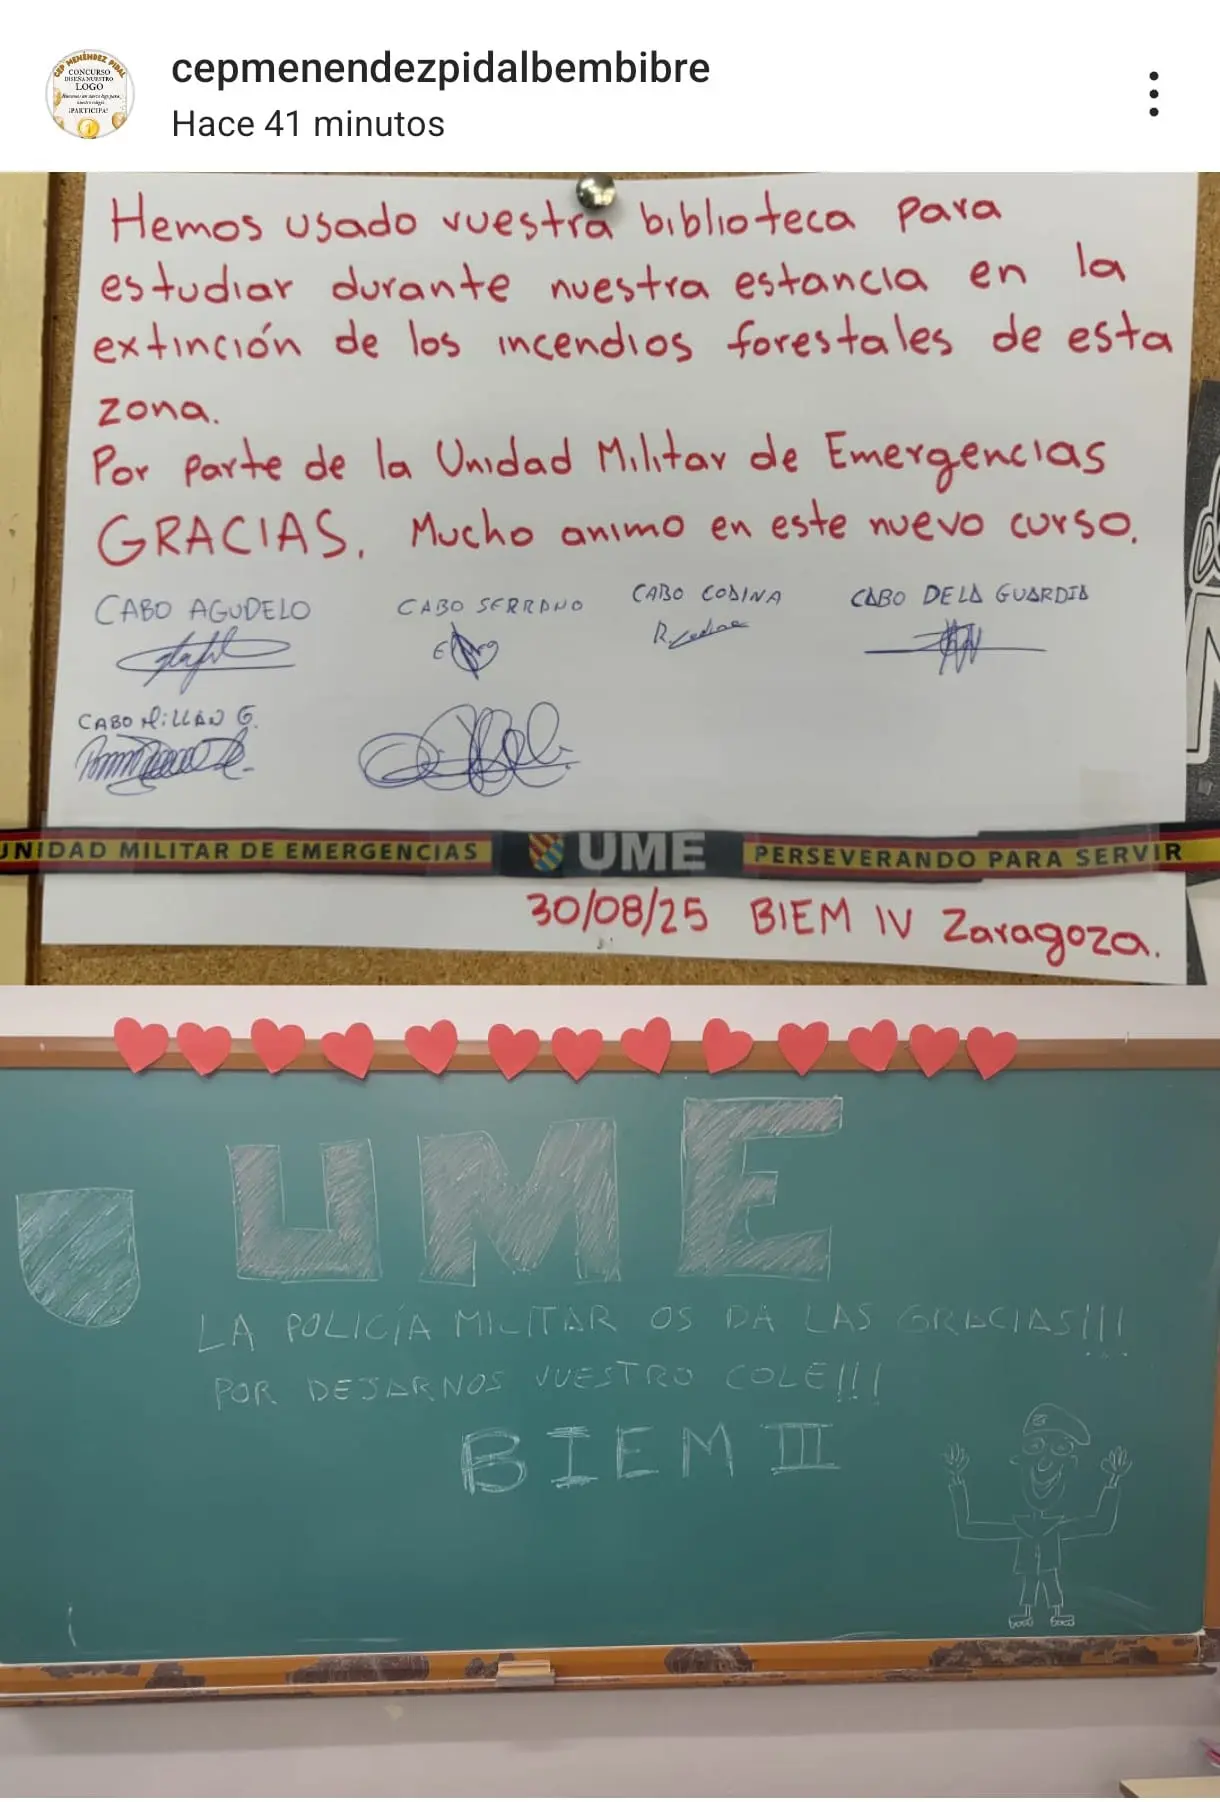 cepmenendezpidalbembibre
Hace 41 minutos
CEP MENÉNDEZ PIDAL
CONCURSO
DISEÑA NUESTRO
LOGO
¡PARTICIPA!
Hemos usado vuestra biblioteca para
estudiar durante nuestra estancia en la
extinción de los incendios forestales de esta
zona.
Por parte de la Unidad Militar de Emergencias
GRACIAS. Mucho animo en este nuevo curso.
CABO AGUDELO CABO SERRANO CABO CODINA CABO DE LA GUARDIA
CABO MiLLAN G.
UNIDAD MILITAR DE EMERGENCIAS UME PERSEVERANDO PARA SERVIR
30/08/25 BIEM IV Zaragoza.
UME
LA POLICÍA MILITAR OS DA LAS GRACIAS!!!
POR DEJARNOS VUESTRO COLE!!!
BIEM III